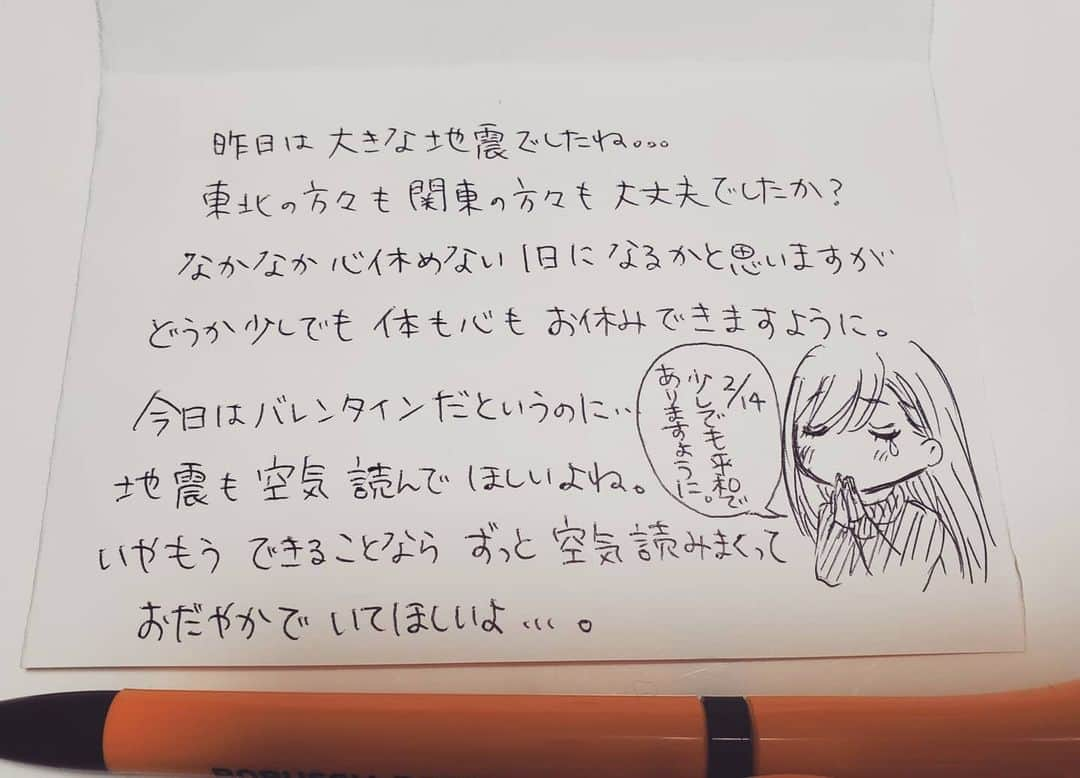 昨日は大きな地震でしたね。。。
東北の方々も関東の方々も大丈夫でしたか?
なかなか心休めない1日になるかと思いますが
どうか少しでも体も心もお休みできますように。
今日はバレンタインだというのに…
地震も空気読んでほしいよね。
いやもうできることならずっと空気読みまくって
おだやかでいてほしいよ…。
2/14
少しでも平和で
ありますように。